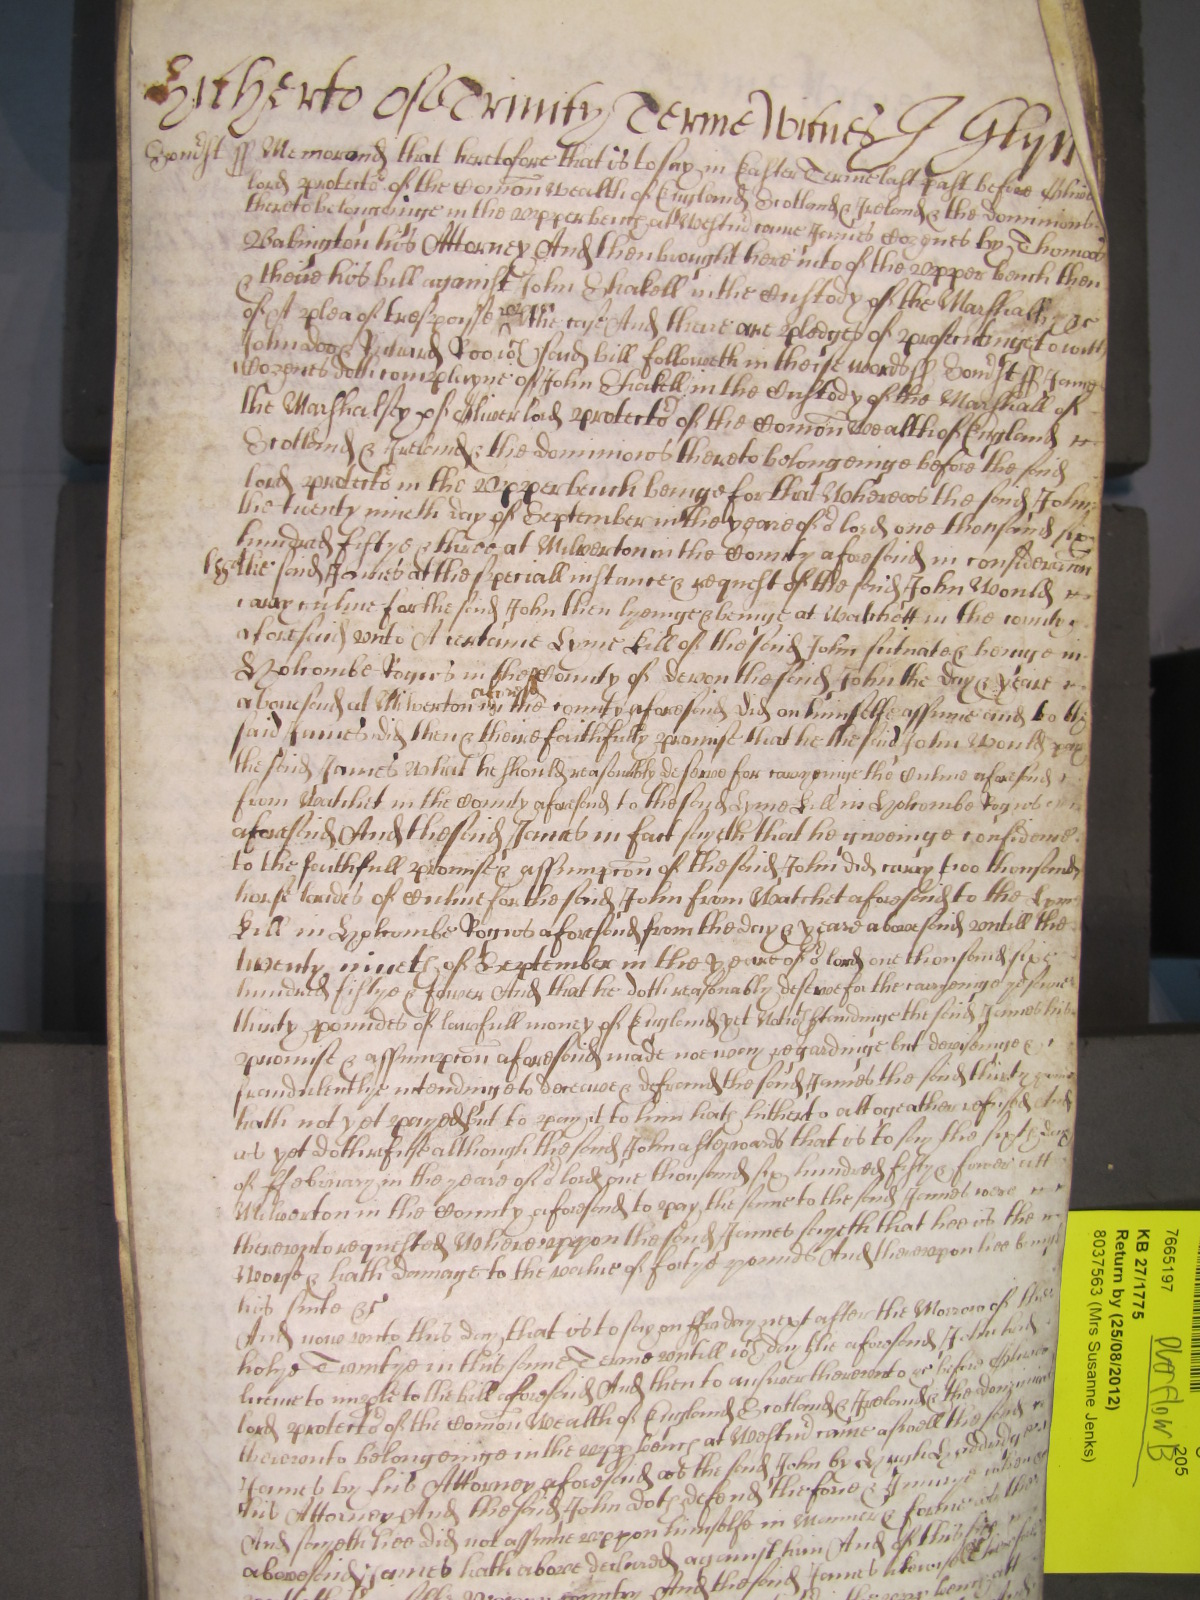 Hitherto Of Trinity Terme Witnes J Glyn
Somst ss Memorand that heretofore that is to say in Easter Terme last past before Oliver
lord protector of the Comon Wealth of England Scotland & Ireland & the dominions
thereto belongeinge in the upper bench at Westmr came James by Thomas
Babington his Attorney And then brought here into of the upper bench then
& theire his bill against John Shakell in the Custody of the Marshall &c
of A plea of trespasse upon the case And there are pledges of prosecutinge to witt
John doo & Richard Roo wch said bill followeth in theise words ss Somst ss James
doth complayne of John Shakell in the Custody of the Marshall of
the Marshalsey of Oliver lord protector of the Comon Wealth of England
Scotland & Ireland & the dominions thereto belongeinge before the said
lord protector in the Upper bench beinge for that Whereas the said John
the twenty nineth day of September in the yeare of or lord one thousand six
hundred fiftye & three at Milverton in the County aforesaid in consideracon
the said James at the speciall instance & request of the said John Would
carry culme for the said John then lyeinge & beinge at Watchett in the county
aforesaid unto A certaine Lyme kill of the said John scituate & beinge in
Holcombe Rogus in the County of devon the said John the day & yeare
abovesaid at Milverton in the county aforesaid did on himselfe assume and to the
said James did then & theire faithfully promise that he the said John Would pay
the said James What he should reasonably deserve for carryeinge the Culme aforesaid
from Watchet in the County aforesaid to the said Lyme kill in Holcombe Rogus
aforesaid And the said James in fact sayth that he giveinge confidence
to the faithfull promise & assumpcon of the said John did carry two thousand
horse loades of Culme for the said John from Watchet aforesaid to the Lyme
kill in Holcombe Rogus aforesaid from the day & yeare abovesaid untill the
twenty nineth of September in the yeare of or lord one thousand sixe
hundred fiftye & fower And that he doth reasonably deserve for the carryeinge
thirty poundes of lawfull money of England yet Notwthstandinge the said his
promise & assumpcon aforesaid made not any regardinge but deviseinge &
fraudulentlye intendinge to deceave & defraud the said James the said thirty
hath not yet payed but to pay it to him hath hitherto altogeather refused And
as yet doth refuse although the said John afterwards that is to say the day
of ffebruary in the yeare of or lord one thousand six hundred fifty & fower att
Milverton in the County aforesaid to pay the same to the said James were
thereunto requested Whereuppon the said James sayeth that hee is the
Worse & hath damage to the value of fortye pounds And thereuppon hee bringeth
his suite &c
And now unto this day that is to say on ffryday next after the Morrow of the
holye Trinitye in this same Terme untill wch day the aforesaid John had
licence to imple to the bill aforesaid And then to answer thereunto &c before Oliver
lord protector of the Comon Wealth of England Scotland & Ireland & the dominions
thereunto belongeinge in the upp bench at Westmr came aswell the said
James by his Attorney aforesaid as the said John by Hugh
his Attorney And the said John doth defend the force & Injurye when &c
And sayeth hee did not assume uppon himselfe in Manner & forme as the
abovesaid James hath above declared against him And of this
country And the said James likewise
7665197
KB 27/1775
Return by (25/08/2012)
8037563 (Mrs Susanne Jenks)
overflow B
205